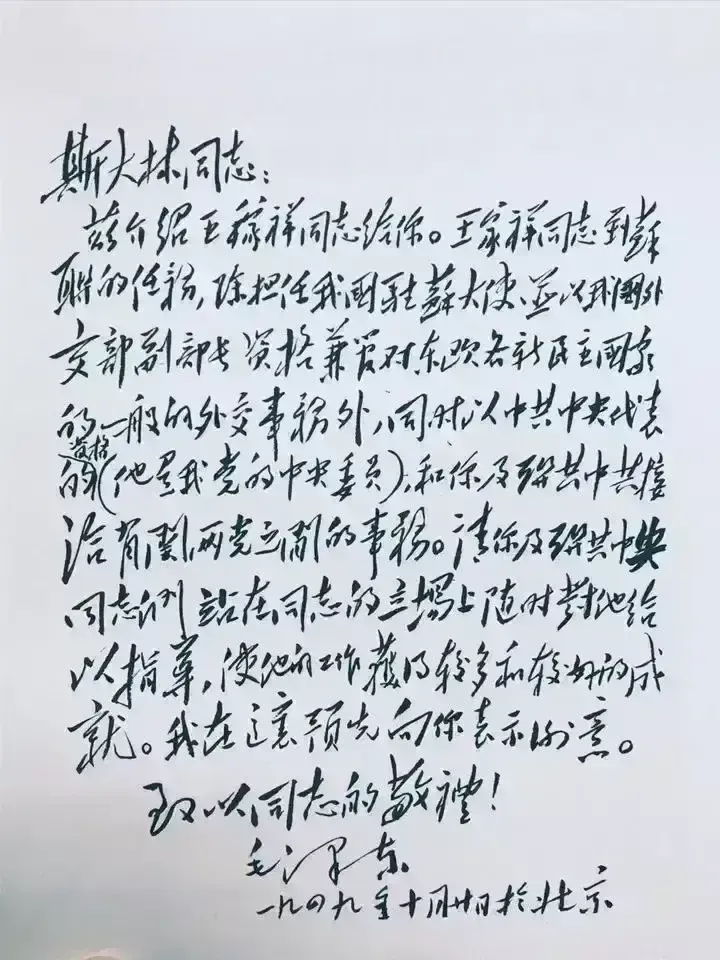 斯大林同志：
兹介绍王稼祥同志给你。王家祥同志到蘇
联的任務，除担任我國駐蘇大使、並以我國外
交部副部长资格兼管对东欧各新民主國家
的一般的外交事務外，同时以中共中央代表
资格
的（他是我党的中央委員），和你及联共中央接
洽有関两党之间的事務。请你及联共中央
同志们站在同志的立場上随时對他给
以指導，使他的工作獲得较多和较好的成
就。我在這裏預先向你表示谢意。
致以同志的敬禮！
毛澤东
一九四九年十月廿日於北京